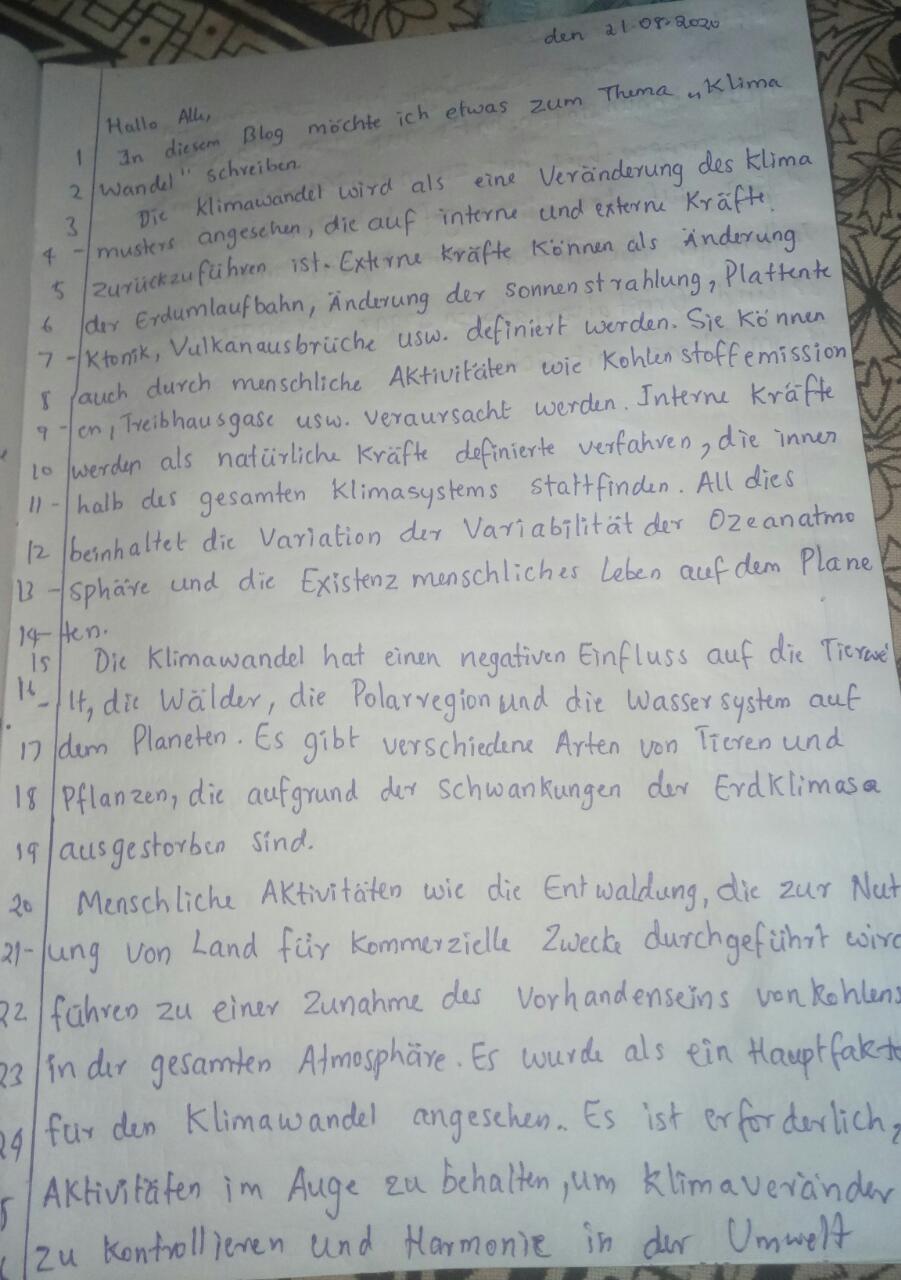 den 21.08.2020
Hallo Alle,
1 In diesem Blog möchte ich etwas zum Thema „Klima
2 Wandel" schreiben
3 Die Klimawandel wird als eine Veränderung des Klima
4 - musters angesehen, die auf interne und externe Kräfte
5 zurückzuführen ist. Externe Kräfte können als Änderung
6 der Erdumlaufbahn, Änderung der sonnenstrahlung, Plattente
7 - ktonik, Vulkanausbrüche usw. definiert werden. Sie können
8 auch durch menschliche Aktivitäten wie Kohlenstoffemission
9 - en, Treibhausgase usw. veraursacht werden. Interne Kräfte
10 werden als natürliche Kräfte definierte verfahren, die innen
11 - halb des gesamten Klimasystems stattfinden. All dies
12 beinhaltet die Variation der Variabilität der Ozeanatmo
13 - sphäre und die Existenz menschliches Leben auf dem Plane
14 - ten.
15 Die Klimawandel hat einen negativen Einfluss auf die Tierwe
16 - lt, die Wälder, die Polarregion und die Wassersystem auf
17 dem Planeten. Es gibt verschiedene Arten von Tieren und
18 Pflanzen, die aufgrund der Schwankungen der Erdklimasa
19 ausgestorben sind.
20 Menschliche Aktivitäten wie die Entwaldung, die zur Nut
21 - ung von Land für kommerzielle Zwecke durchgeführt wird
22 führen zu einer Zunahme des Vorhandenseins von kohlens
23 in der gesamten Atmosphäre. Es wurde als ein Hauptfakto
24 für den Klimawandel angesehen. Es ist erforderlich,
5 Aktivitäten im Auge zu behalten, um Klimaveränder
zu kontrollieren und Harmonie in der Umwelt